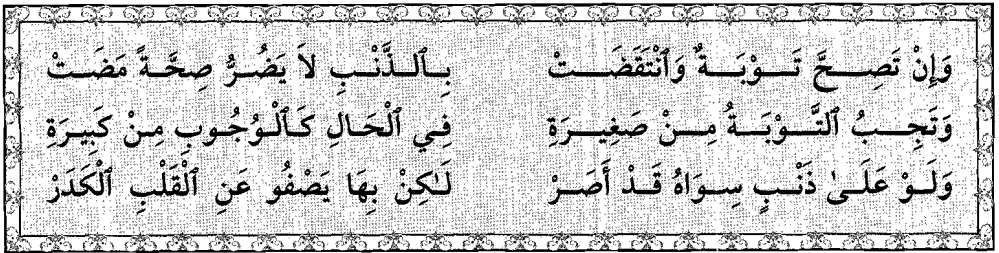 وَإِنْ تَصِحَّ تَوْبَةٌ وَٱنْتَقَضَتْ بِٱلذَّنْبِ لاَ يَضُرُّ صِحَّةً مَضَتْ
وَتَجِبُ ٱلتَّوْبَةُ مِنْ صَغِيرَةِ فِي ٱلْحَالِ كَٱلْوُجُوبِ مِنْ كَبِيرَةِ
وَلَوْ عَلَىٰ ذَنْبٍ سِوَاهُ قَدْ أَصَرْ لَٰكِنْ بِهَا يَصْفُو عَنِ ٱلْقَلْبِ ٱلْكَدَرْ